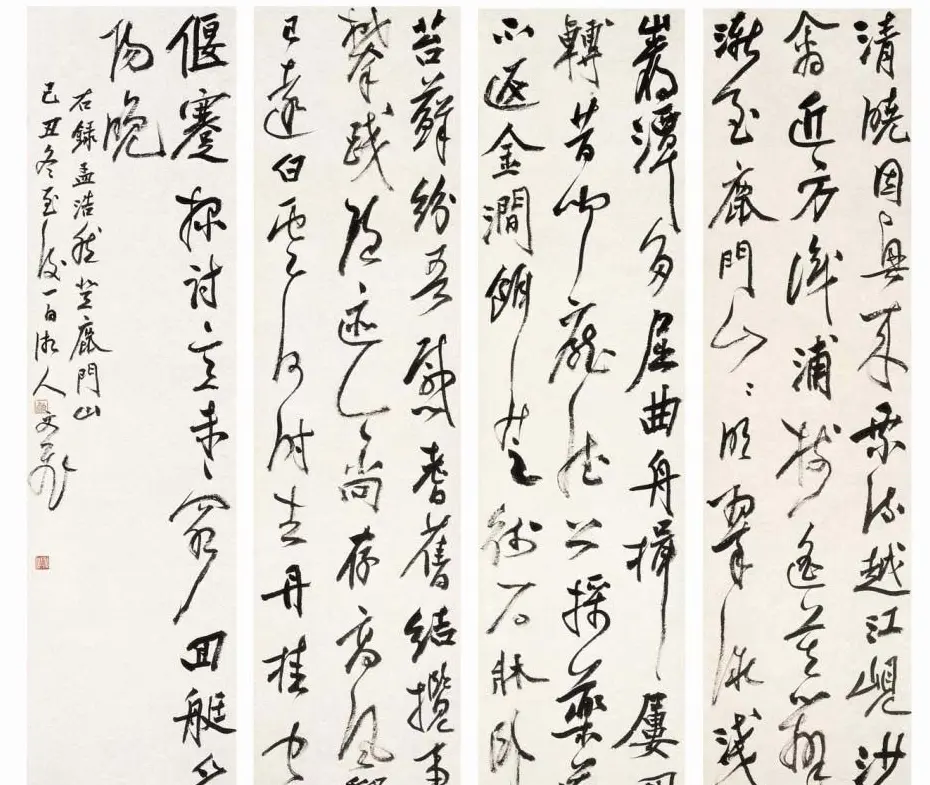 清曉因興來乘流越江峴沙
禽近方識浦樹遙莫辨
漸至鹿門山〻明翠微淺
巖潭多屈曲舟楫屢回
轉昔聞龐德公採藥遂
不返金澗餌芝朮石牀臥
苔蘚紛吾感耆舊結攬事
攀踐隱迹今尚存高風邈
已遠白雲何時去丹桂空
偃蹇探討意未窮回艇夕
陽晚
右錄孟浩然登鹿門山
己丑冬至後一日湘人